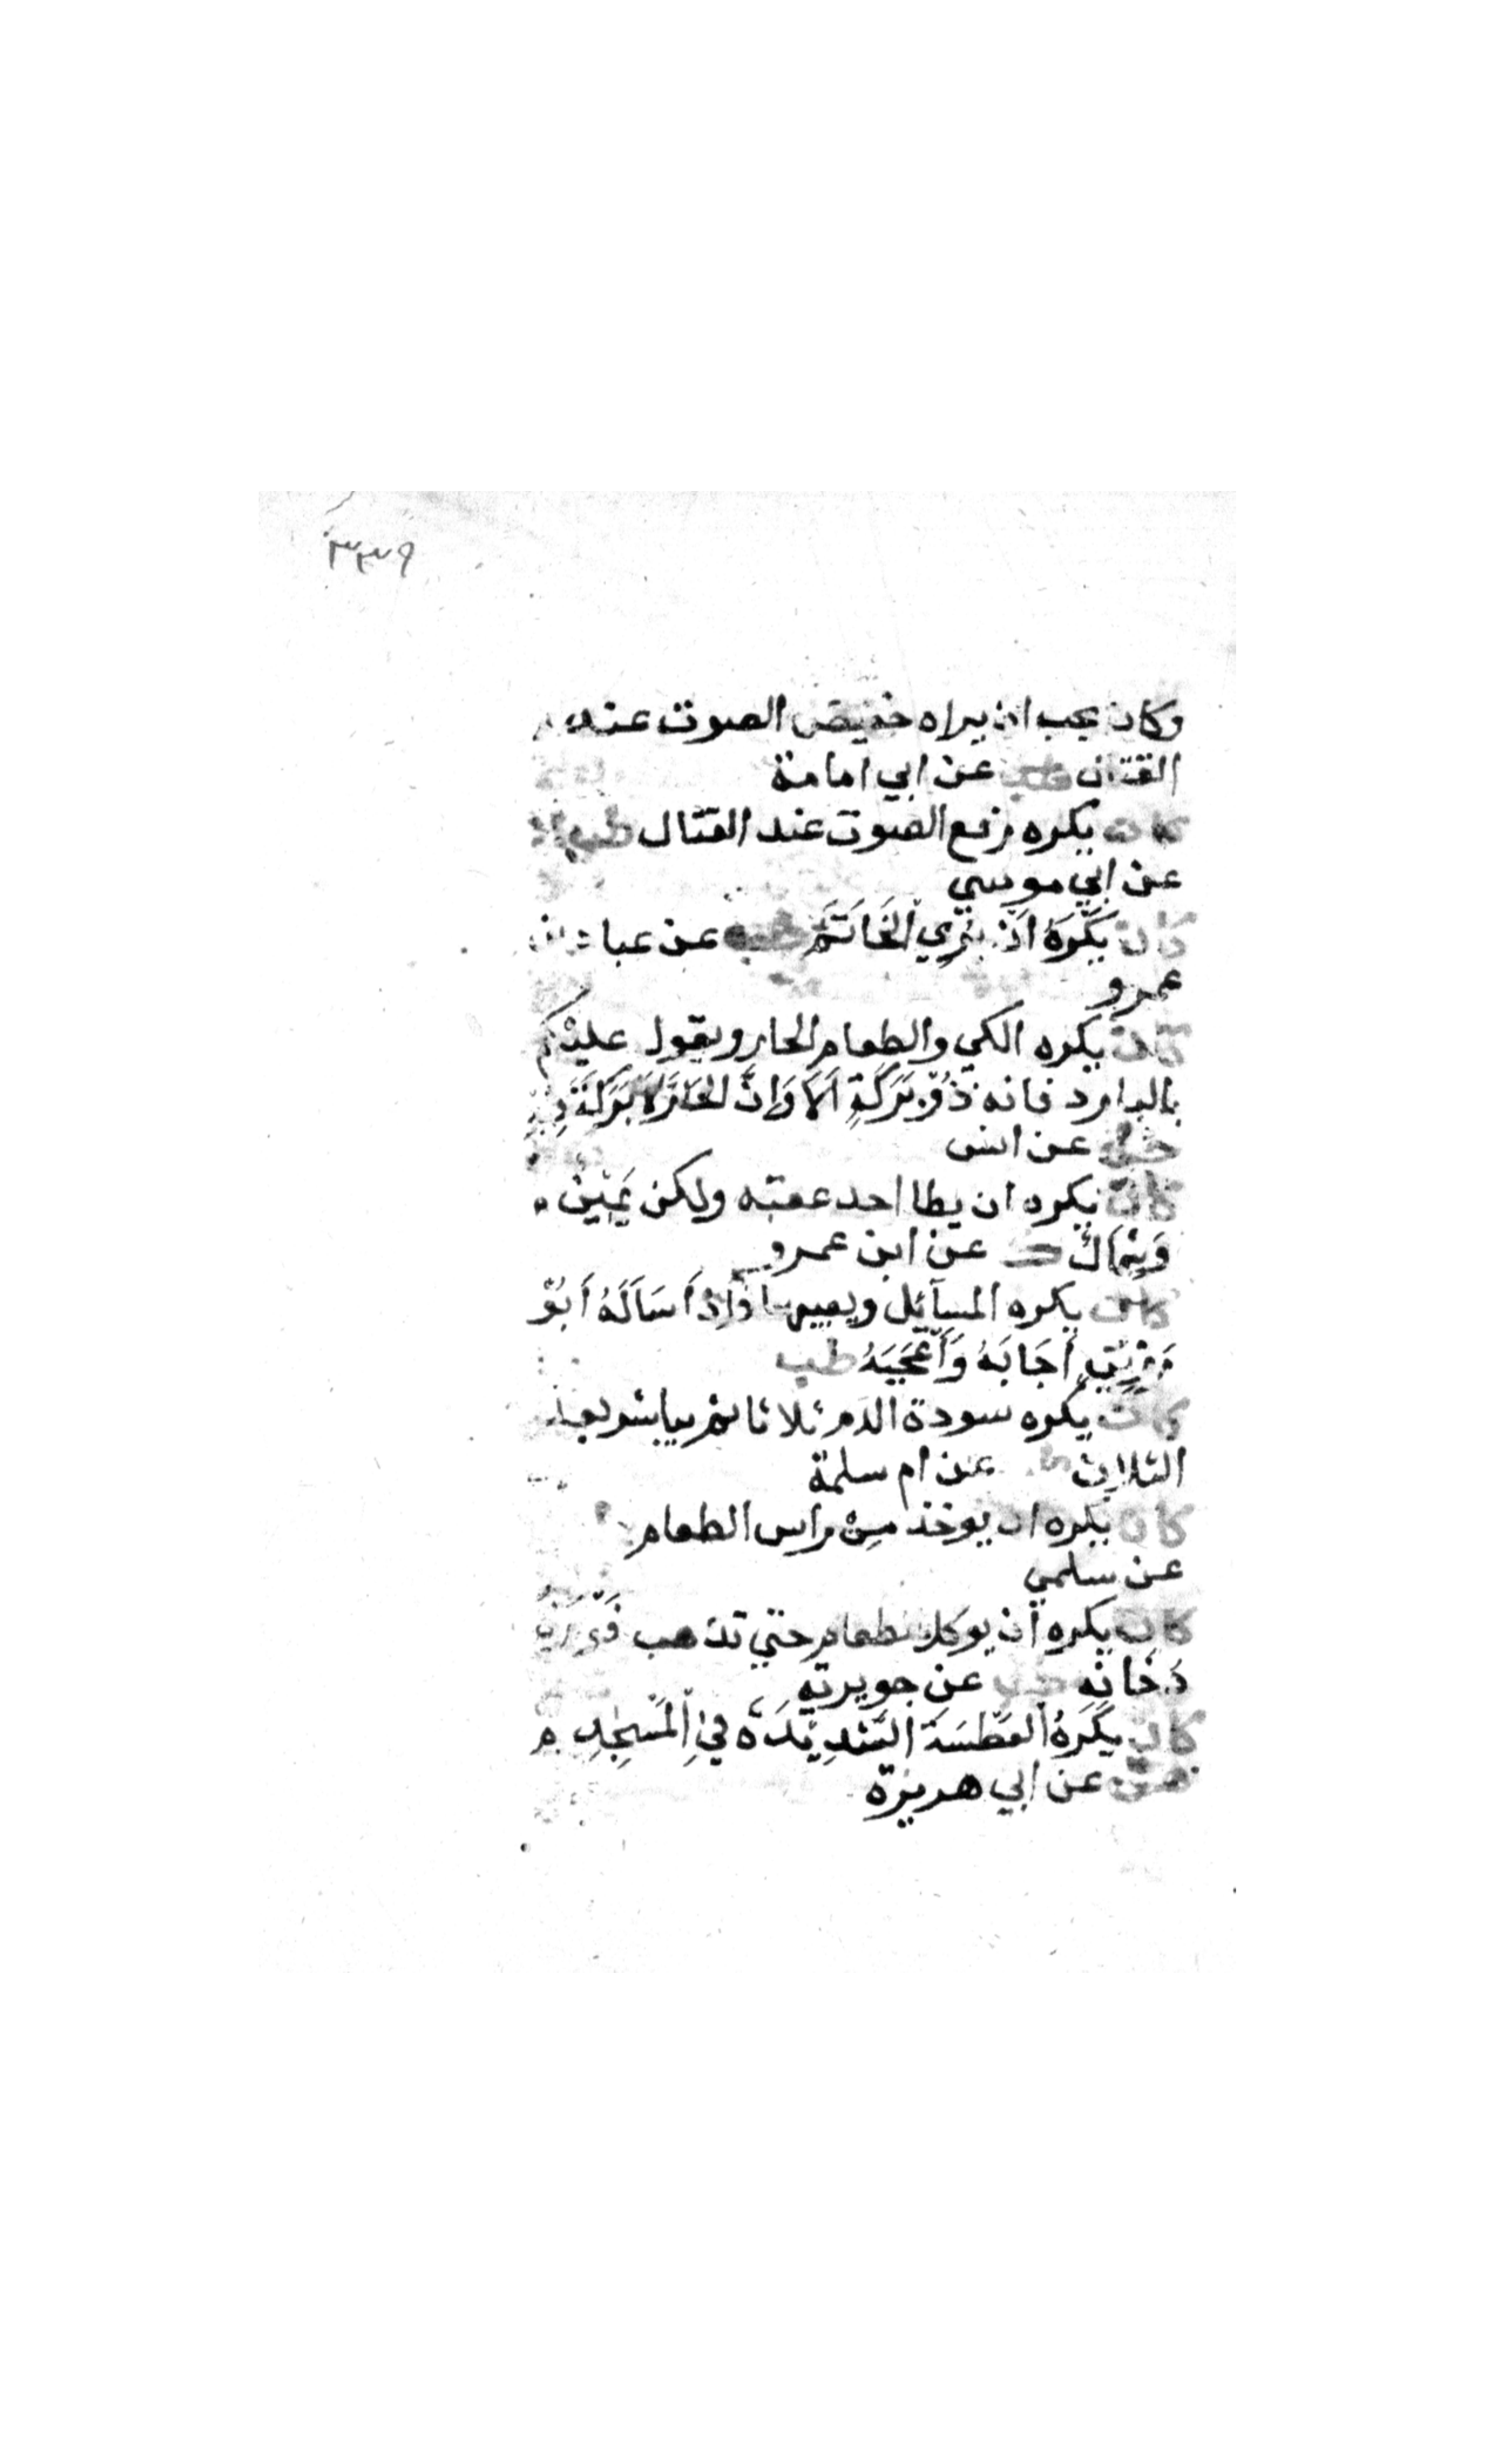 ٣٣٩
وكان يحب ان يراه خفيض الصوت عند
القتال طب عن ابي امامة
كان يكره رفع الصوت عند القتال طب
عن ابي موسي
كان يَكْرَهُ اَنْ يُرَي الْخَاتَمُ طب عن عباد بن
عمرو
كان يكره الكي والطعام الحار ويقول عليْكم
بالبارد فانه ذُوْ بَرَكَةٍ اَلَا وَاِنَّ الحَارَّ لَا بَرَكَةَ
عن انس
كان يكره ان يطا احد عقبه ولكن يَمِيْنٌ
وَشِمَالٌ ك عن ابن عمرو
كان يكره المسآئل ويعيبها فَاِذَا سَاَلَهُ اَبُوْ
رَزِيْنٍ اَجَابَهُ وَاَعْجَبَهُ طب
كان يكره سورة الدم ثلاثا ثم يباشر بعد
الثلاث عن ام سلمة
كان يكره ان يوخذ مِنْ راس الطعام
عن سلمي
كان يكره ان يوكل الطعام حتي تذهب فَوْرَةُ
دُخانِه طب عن جويرية
كان يَكْرَهُ الْعَطْسَةَ الشَّدِيْدَةَ فِي الْمَسْجِدِ
هق عن ابي هريرة